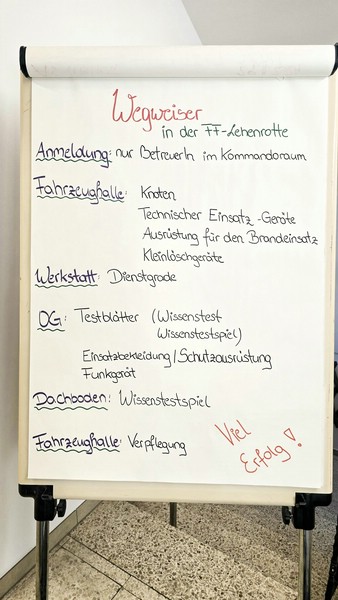 Wegweiser
in der FF-Lehenrotte
Anmeldung: nur BetreuerIn im Kommandoraum
Fahrzeughalle: Knoten
Technischer Einsatz-Geräte
Ausrüstung für den Brandeinsatz
Kleinlöschgeräte
Werkstatt: Dienstgrade
OG: Testblätter (Wissenstest
Wissenstestspiel)
Einsatzbekleidung/Schutzausrüstung
Funkgerät
Dachboden: Wissenstestspiel
Fahrzeughalle: Verpflegung
Viel
Erfolg!